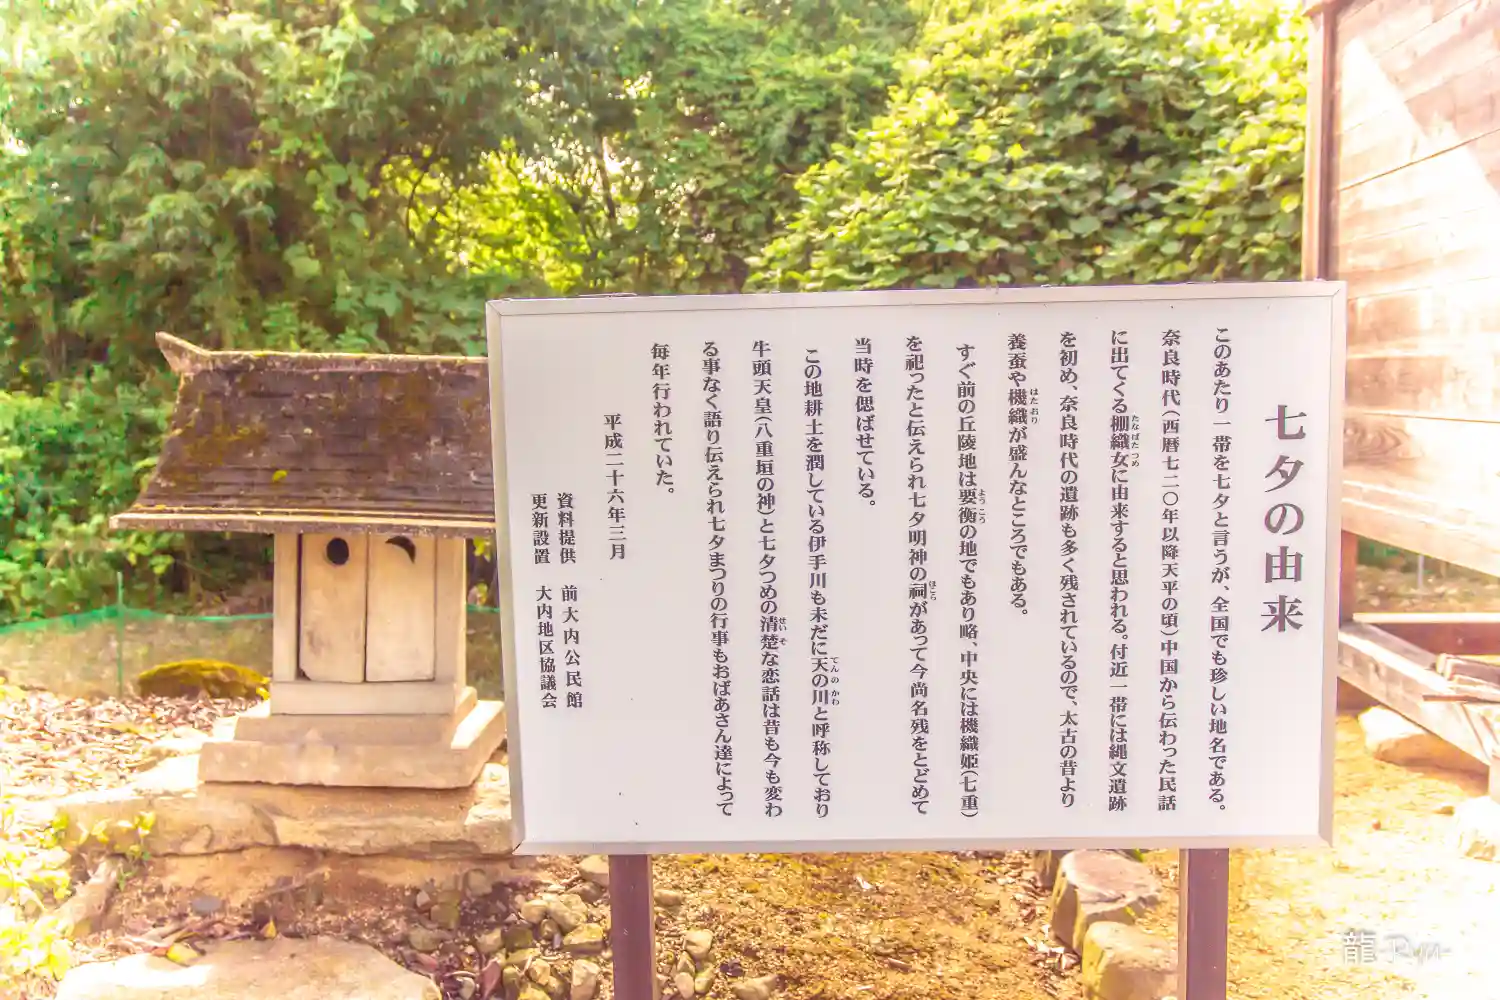 七夕の由来
このあたり一帯を七夕と言うが、全国でも珍しい地名である。
奈良時代(西暦七二〇年以降天平の頃)中国から伝わった民話
に出てくる棚織女に由来すると思われる。付近一帯には縄文遺跡
たなばた つめ
を初め、奈良時代の遺跡も多く残されているので、太古の昔より
養蚕や機織が盛んなところでもある。
はたおり
すぐ前の丘陵地は要衡の地でもあり略、中央には機織姫(七重)
ようころ
を祀ったと伝えられ七夕明神の祠があって今尚名残をとどめて
ほこら
当時を偲ばせている。
この地耕土を潤している伊手川も未だに天の川と呼称しており
てんの かわ
牛頭天皇(八重垣の神)と七夕つめの清楚な恋話は昔も今も変わ
せい そ
る事なく語り伝えられ七夕まつりの行事もおばあさん達によって
毎年行われていた。
平成二十六年三月
資料提供 前大内公民館
更新設置 大内地区協議会
龍-Ryu-